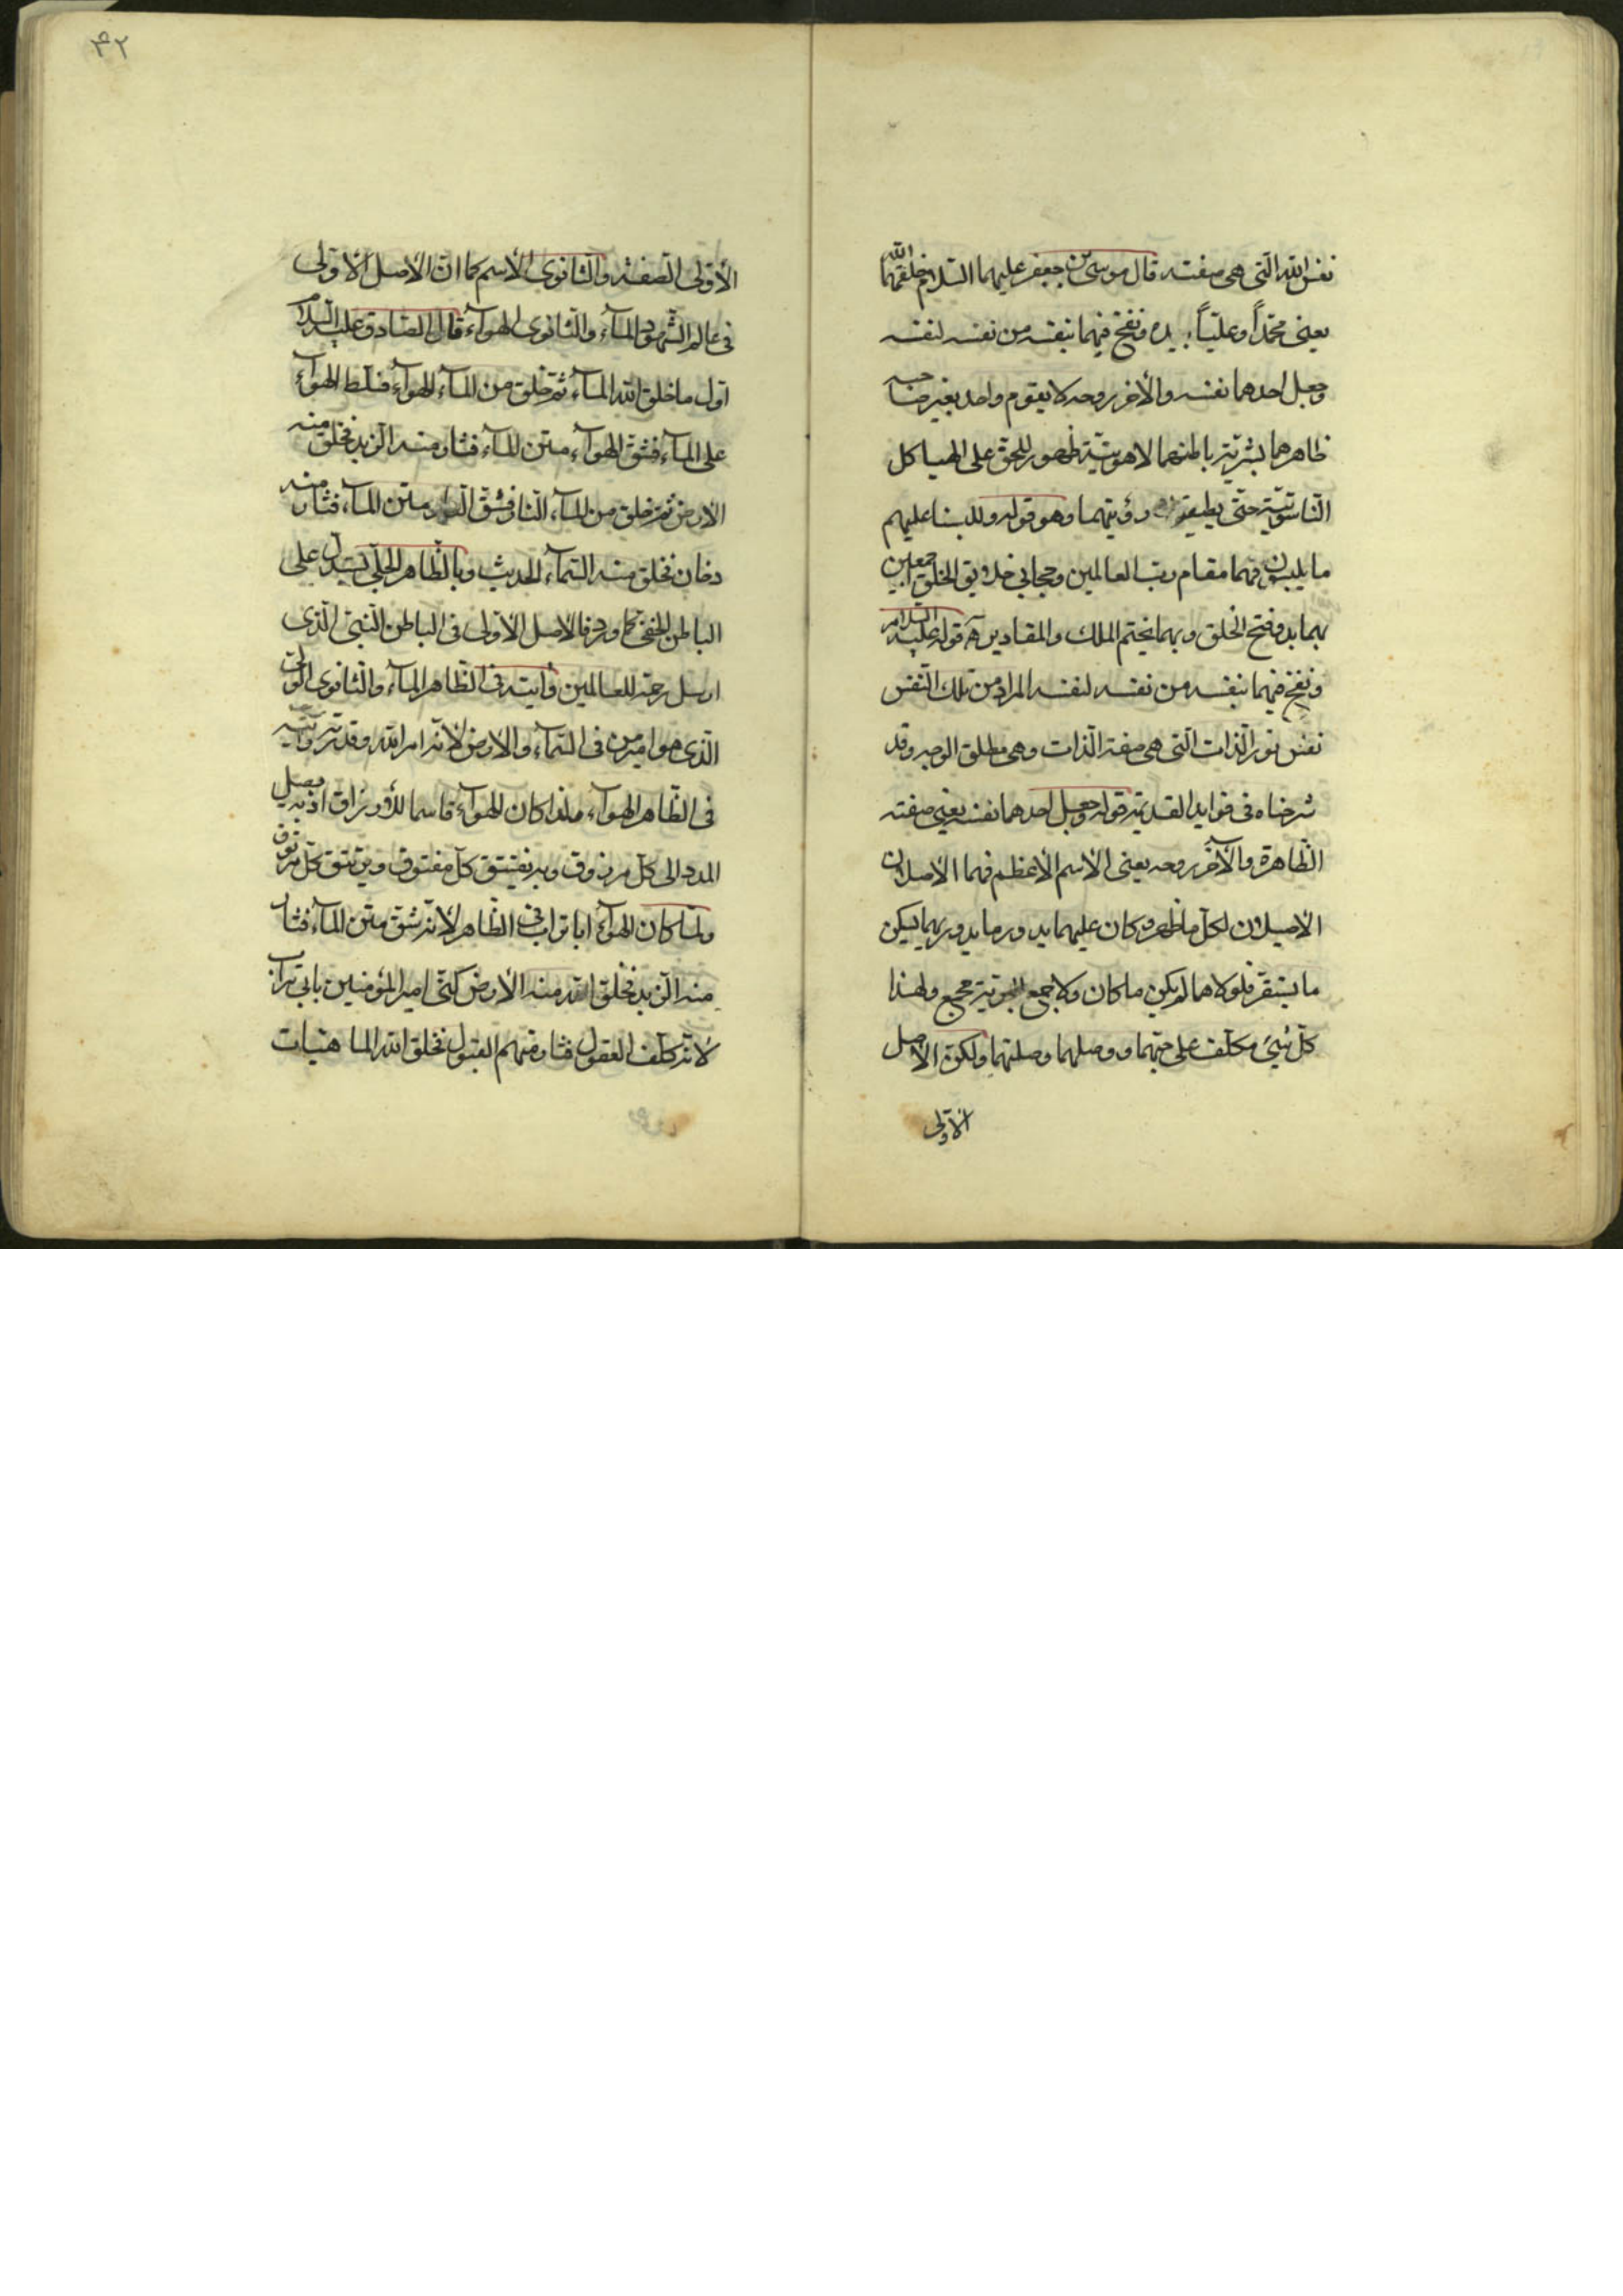 نفس الله الّتى هى صفته قال موسى بن جعفر عليهما السّلام خلقهما الله
يعنى محمّداً وعليّاً بيده ونفخ فيهما بنفسه من نفسه لنفسه
وجعل احدهما نفسه والأخر روحه لا يقوم واحد بغير صاحبه
ظاهرهما بشريّة باطنهما لاهوتيّة ظهور للحق على الهياكل
النّاسوتيّة حتّى يطيقوا رؤيتهما وهو قوله وللبسنا عليهم
ما يلبسون فهما مقام ربّ العالمين وحجابى خلايق الخلق اجمعين
بهما بدو فتح الخلق وبهما يختم الملك والمقادير آه قوله عليه السّلام
ونفخ فيهما بنفسه من نفسه لنفسه المراد من تلك النّفس
نفس نور الّذات الّتى هى صفة الّذات وهى مطلق الوجه وقد
شرحناه فى فوايد القديمة قوله وجعل احدهما نفسه يعنى صفته
الظّاهرة والآخر روحه يعنى الأسم الأعظم فهما الأصلان
الأصيلان لكلّ ما ظهر وكان عليهما يدور ما يدور بهما يسكن
ما يستقر فلولاهما لم يكن ما كان ولا جمع مجمع ولهذا
كلّ شىء مكلّف على حبّهما ووصلهما وصلتهما ولكون الاصل
الأوّلى
٤٢
الأوّلى الصفة والثانوى الأسم كما انّ الأصل الأوّلى
فى عالم الشّهود المآء والثانوى الهوآء قال الصّادق عليه السّلام
اوّل ما خلق الله المآء ثمّ خلق من المآء الهوآء فسلّط الهوآء
على المآء فشقّ الهوآء متن المآء فثار منه الزبد فخلق منه
الارض ثمّ خلق من المآء النار فشقّ النار متن المآء فثار منه
دخان فخلق منه السّمآء الحديث وبالظّاهر الجلّى يستدلّ على
الباطن الخفىّ كما ورد فالاصل الأوّلى فى الباطن النّبىّ الّذى
ارسل رحمة للعالمين وآيته فى الظّاهر المآء والثانوى الولىّ
الّذى هو امير من فى السّمآء والارض لأنّه امر الله وقدرته وآيته
فى الظّاهر الهوآء ولهذا كان الهوآء قاسما للأرزاق اذ به يصل
المدد الى كلّ مرزوق وبه يفتتق كلّ مفتوق ويرتتق كلّ مرتوق
ولمّا كان الهوآء ابا تراب فى الظّاهر لأنّه شقّ متن المآء فثار
منه الزبد فخلق الله منه الأرض كنّى امير المؤمنين بابى تراب
لانّه كلّف العقول فثار منهم القبول فخلق الله الماهيّات